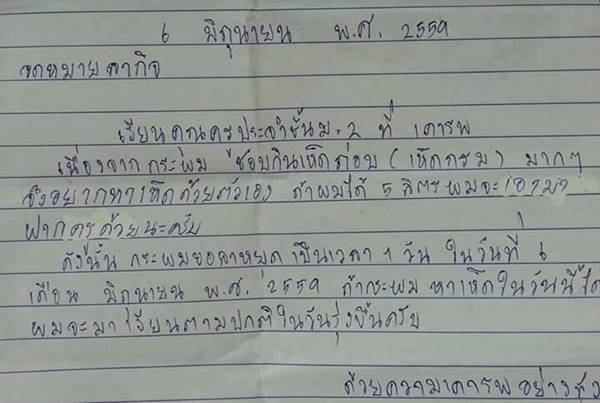 6 มิถุนายน พ.ศ. 2559
จดหมายลากิจ
เรียนคุณครูประจำชั้นม.2 ที่ เคารพ
เนื่องจาก กระผม ชอบกินเห็ดถอบ (เห็ดกรม) มากๆ
จึงอยากหาเห็ดด้วยตัวเอง ถ้าผมได้ 5 ลิตร ผมจะเอามา
ฝากครูด้วยนะครับ
ดังนั้น กระผมขอลาหยุด เป็นเวลา 1 วัน ในวันที่ 6
เดือน มิถุนายน พ.ศ. 2559 ถ้ากระผม หาเห็ดในวันนี้ได้
ผมจะมาเรียนตามปกติในวันรุ่งขึ้นครับ
ด้วยความเคารพ อย่าง